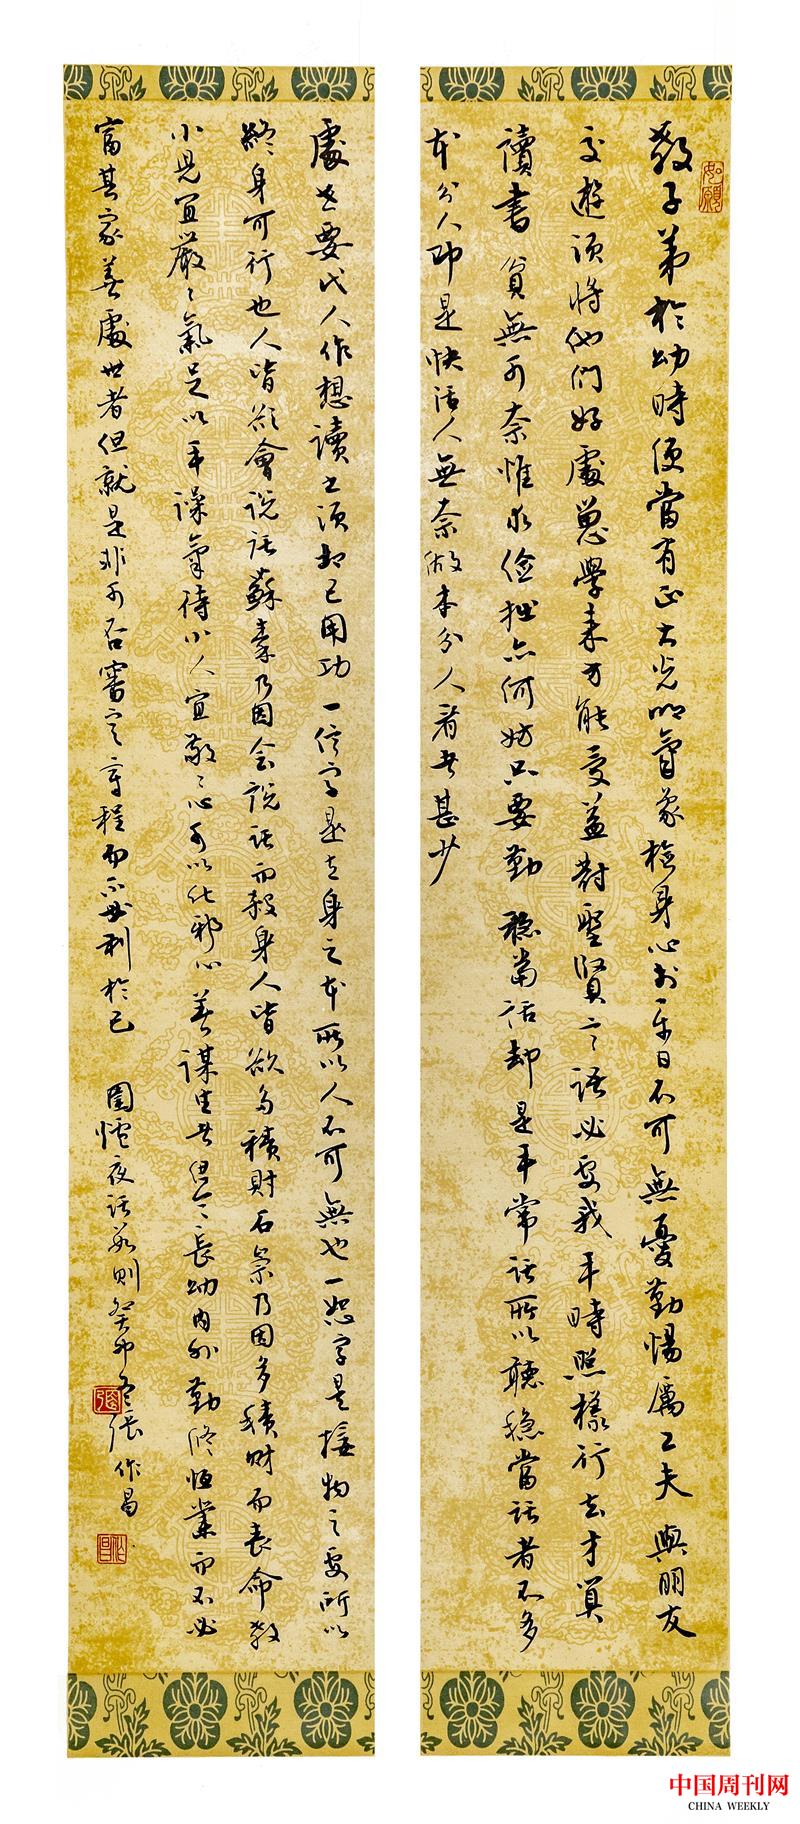 如願
教子弟於幼時便當有正大光明氣象檢身心於平日不可無憂勤惕厲工夫 與朋友
交遊須將他們好處留心學来方能受益對聖賢言語必要我平時照樣行去才算
讀書 貧無可奈惟求儉拙亦何妨只要勤 穩當話却是平常話所以聽穩當話者不多
本分人即是快活人無奈做本分人者甚少
處世要代人作想讀書須切己用功一信字是立身之本所以人不可無也一恕字是接物之要所以
終身可行也人皆欲會説話蘇秦乃因会説話而殺身人皆欲多積財石崇乃因多積財而喪命教
小兒宜嚴〻氣足以平躁氣待小人宜敬〻心可以化邪心 善謀生者但令長幼內外勤修恆業而不必
富其家善處世者但就是非可否審定章程而不必利於己 圍爐夜話數則癸卯冬張作昌
張
作昌
中国周刊网
CHINA WEEKLY